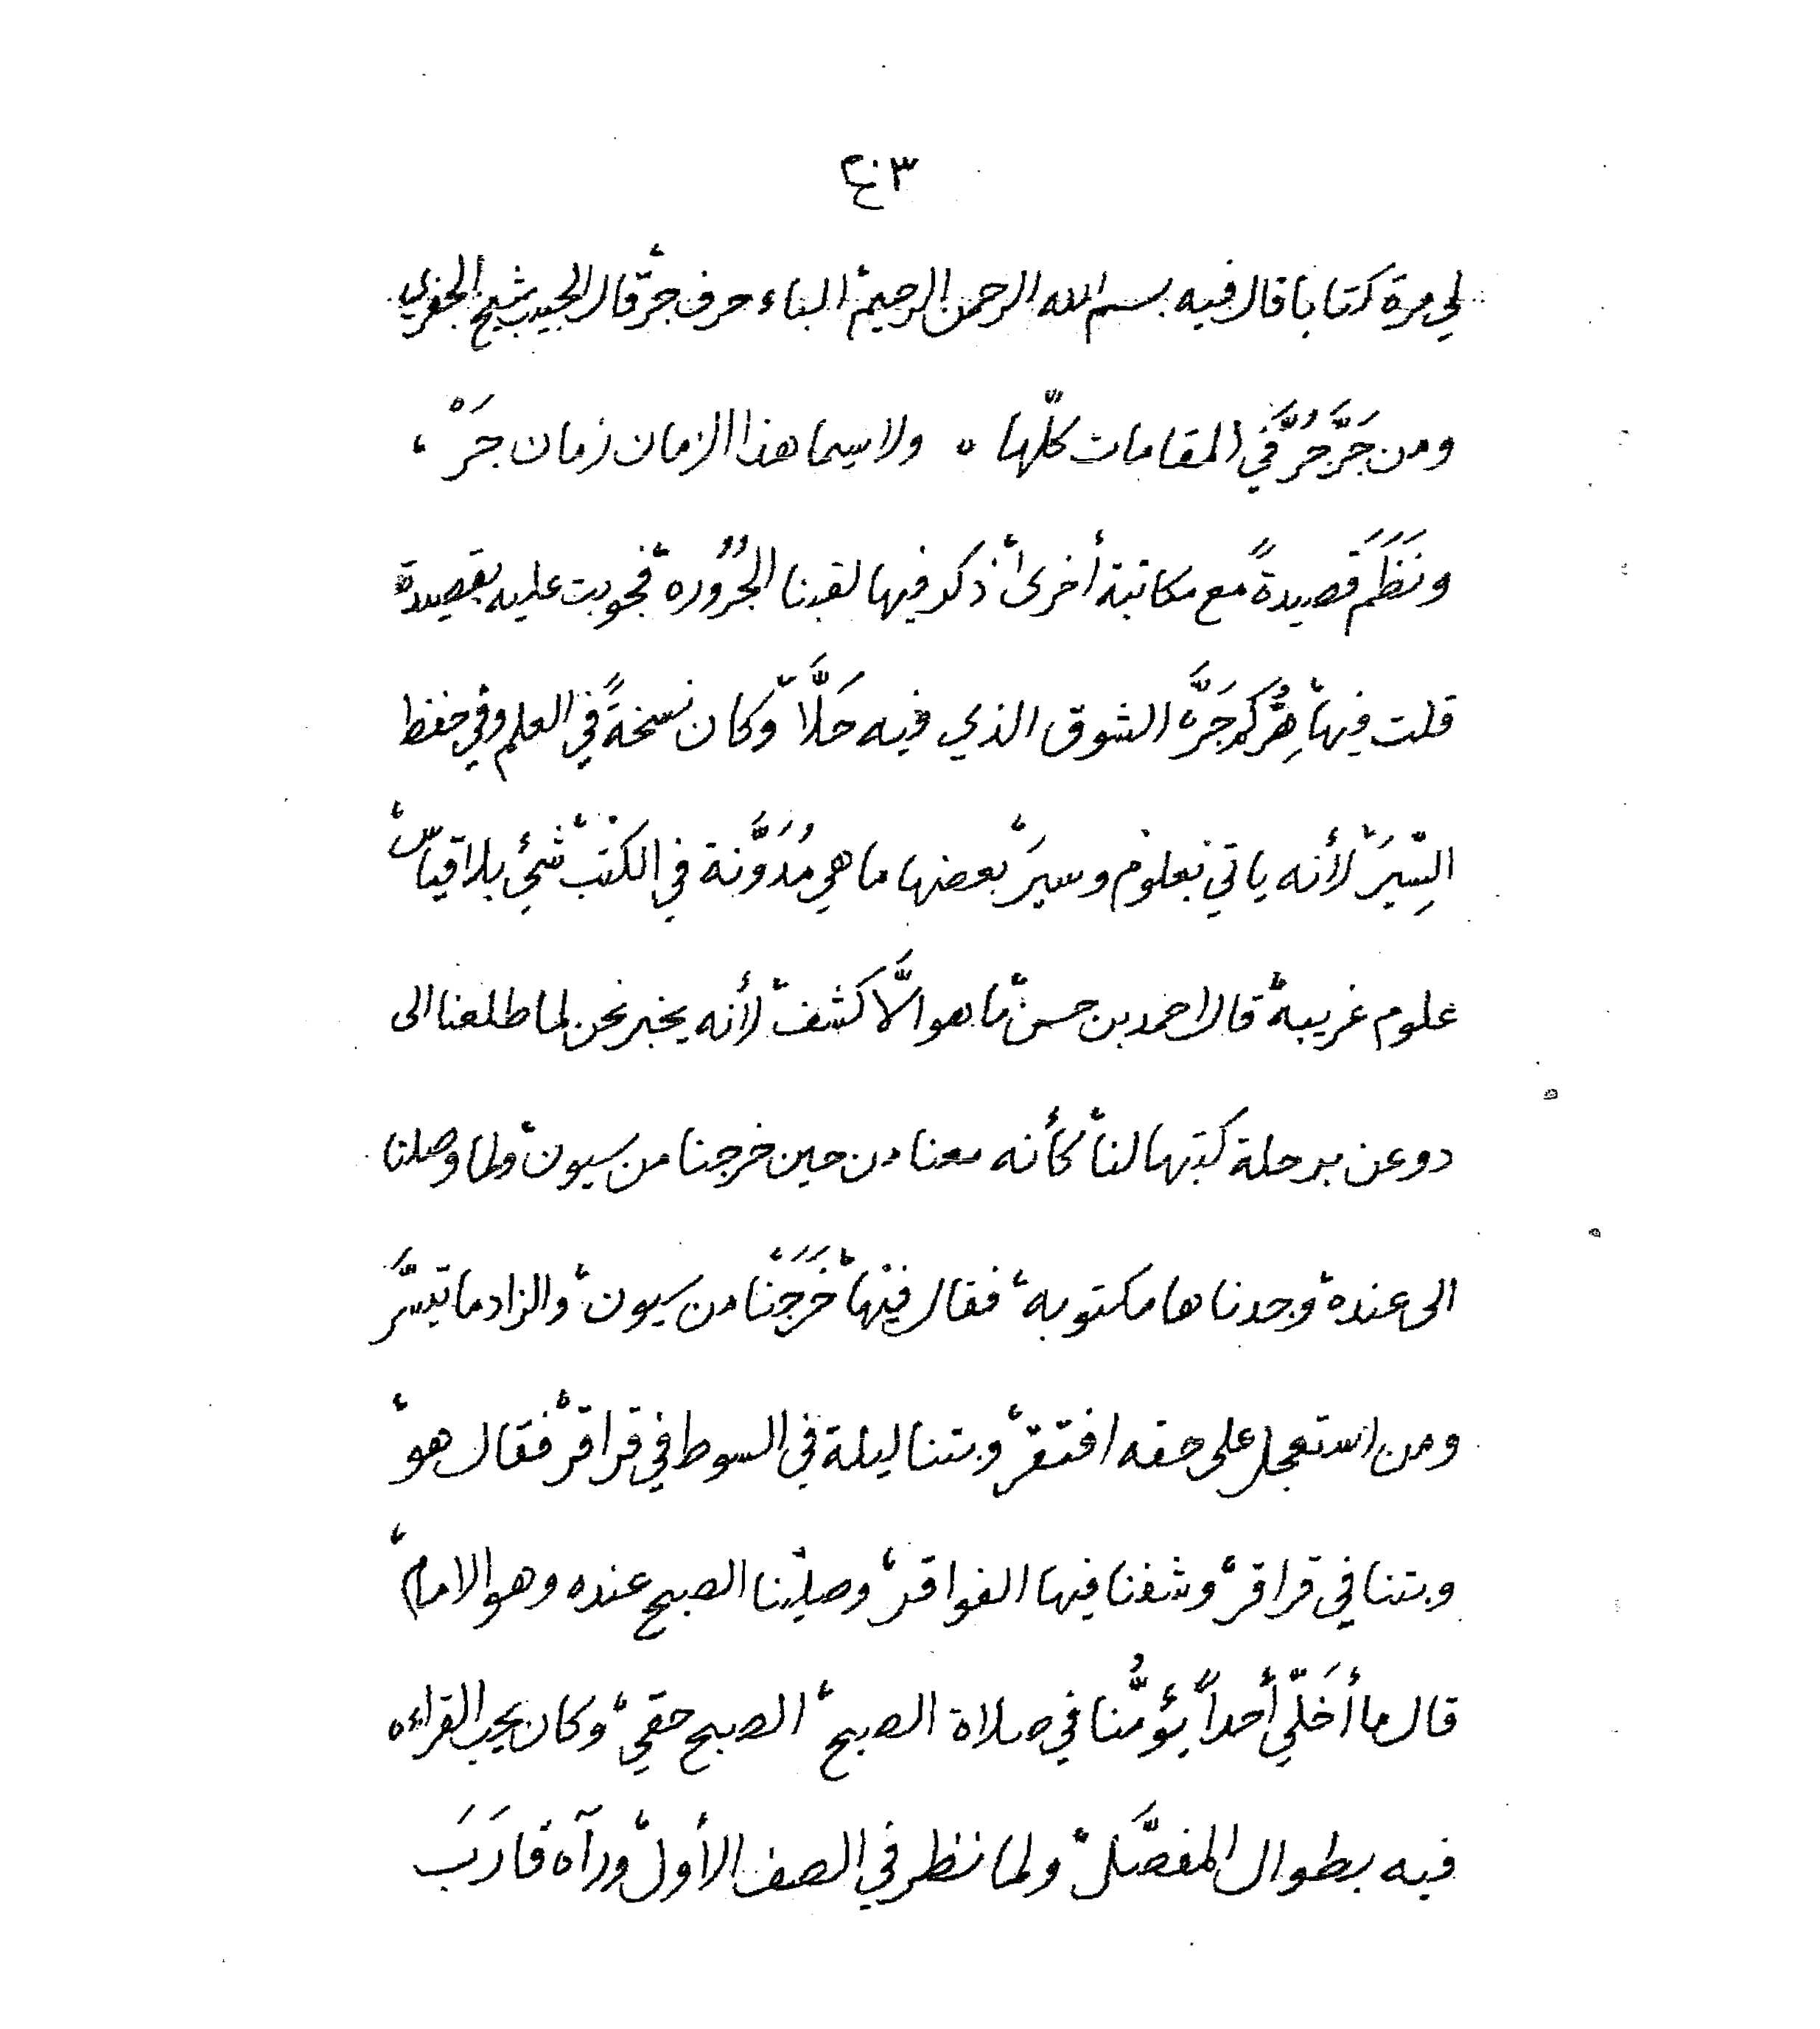 ٤٠٣
لي مرة كتابا قال فيه بسم الله الرحمن الرحيم، الباء حرف جر، قال الحبيب شيخ الجفري
ومن جَرَّ جُرَّ في المقامات كلّها ٥ ولا سيما هذا الزمان زمان جَرْ،
ونَظَمَ قصيدةً مع مكاتبة أخرى، ذكر فيها لقبنا الجُرُوره، فجوبت عليه بقصيدة
قلت فيها، جَرَّه الشوق الذي فيه حَلَّا، وكان نسخةً في العلم وفي حفظ
السِّيَر، لأنه ياتي بعلوم وسير، بعضها ما هي مُدَوَّنة في الكتب، شئ بلا قياس،
علوم غريبة، قال احمد بن حسن، ما هو الَّا كَشف، لأنه يخبر نحن لما طلعنا الى
دوعن برحلة كتبها لنا، كأنه معنا من حين خرجنا من سيون، ولما وصلنا
الى عنده، وجدناها مكتوبه، فقال فيها، خَرَجْنا من سيون، والزاد ما تيسَّر
ومن استعجل على حقه افتقر، وبتنا ليلة في السوط في قراقر، فقال هو،
وبتنا في قراقر، وشفنا فيها الفواقر، وصلّينا الصبح عنده وهو الامام،
قال ما أخَلّي أحداً يؤمُّنا في صلاة الصبح، الصبح حقي، وكان يحب القراءه
فيه بطوال المفصَّل، ولما نظر في الصف الأول، ورآه قارَبَ